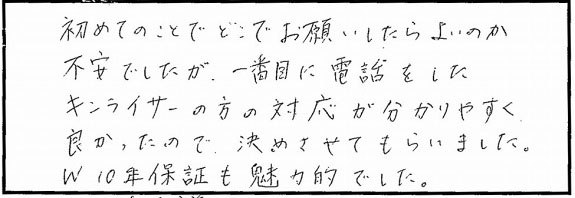 初めてのことでどこでお願いしたらよいのか
不安でしたが、一番目に電話をした
キンライサーの方の対応が分かりやすく
良かったので、決めさせてもらいました。
W10年保証も魅力的でした。